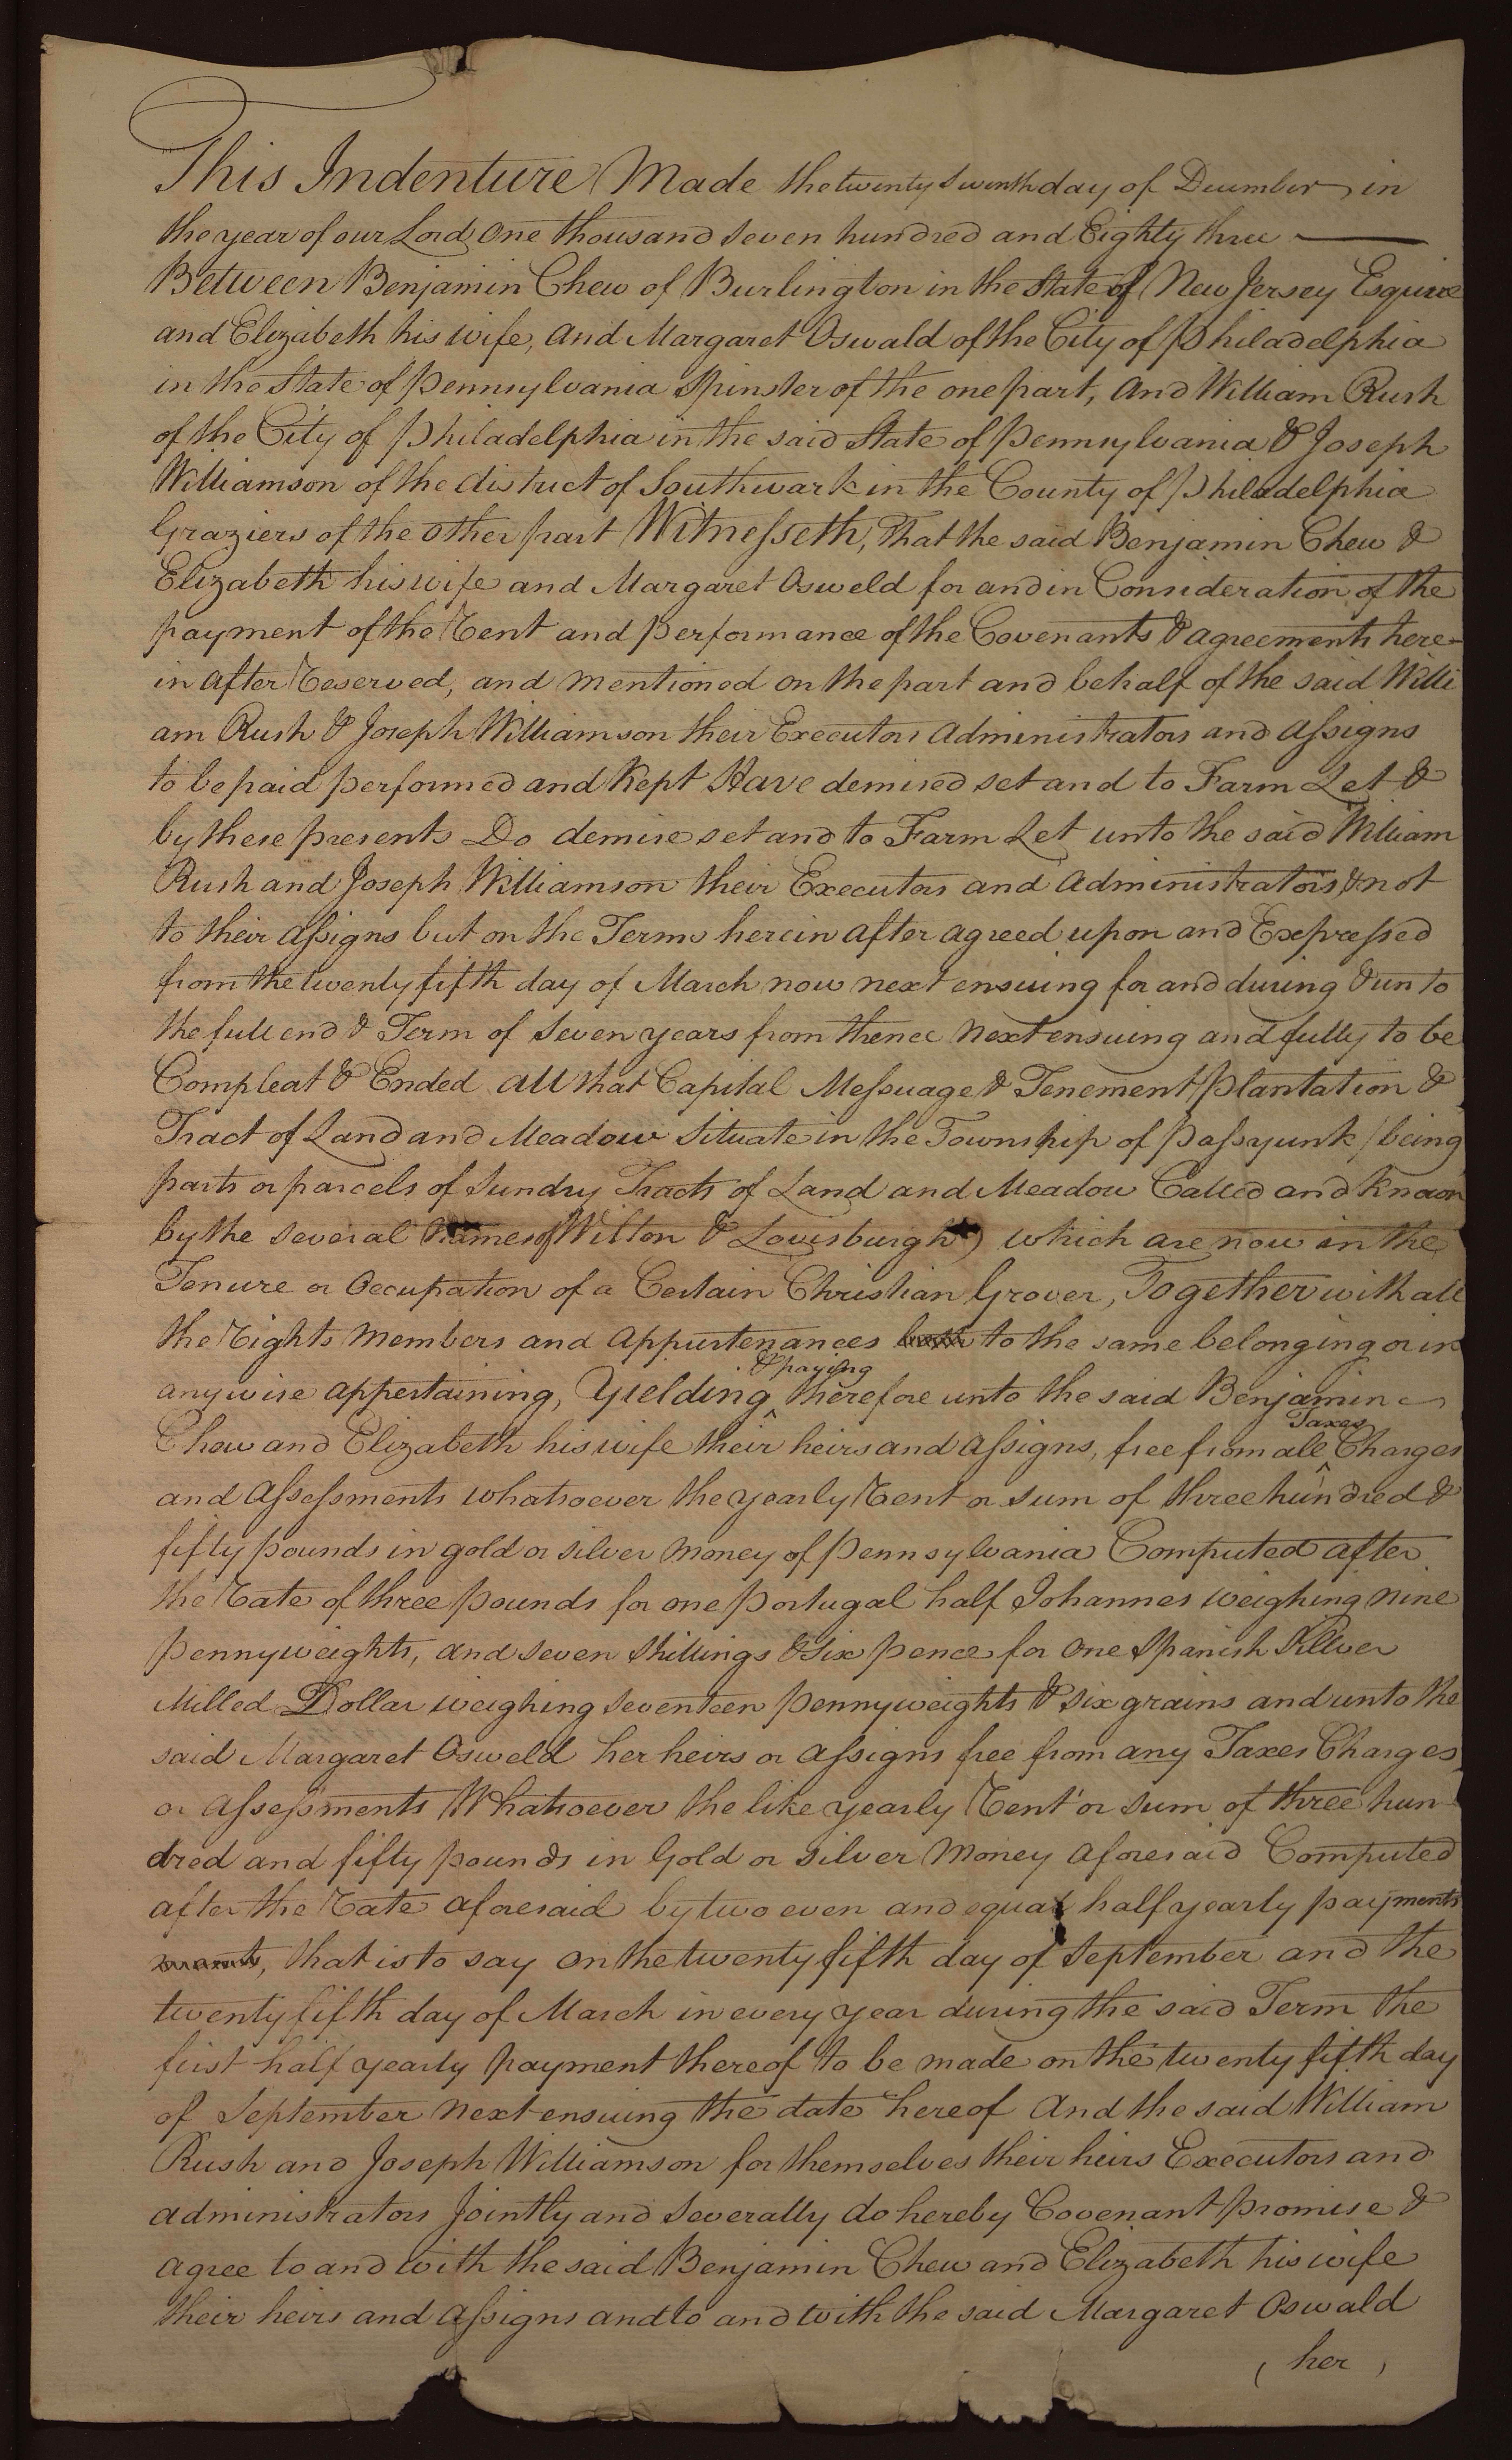 This Indenture Made the twenty seventh day of December in
the year of our Lord One thousand seven hundred and Eighty three
Between Benjamin Chew of Burlington in the State of New Jersey Esquire
and Elizabeth his wife, and Margaret Oswald of the City of Philadelphia
in the State of Pennsylvania Spinster of the one part, And William Rush
of the City of Philadelphia in the said State of Pennsylvania & Joseph
Williamson of the district of Southwark in the County of Philadelphia
Graziers of the other part Witnesseth, That the said Benjamin Chew &
Elizabeth his wife and Margaret Osweld for and in Consideration of the
payment of the Rent and performance of the Covenants & agreements here-
in after Reserved, and mentioned on the part and behalf of the said Willi
am Rush & Joseph Williamson their Executors Administrators and Assigns
to be paid performed and Kept Have demised set and to Farm Let &
by these presents Do demise set and to Farm Let unto the said William
Rush and Joseph Williamson their Executors and Administrators, & not
to their Assigns but on the Terms herein after agreed upon and Expressed
from the twenty fifth day of March now next ensuing for and during & unto
the full end & Term of seven years from thence next ensuing and fully to be
Compleat & Ended All that Capital Messuage & Tenement Plantation &
Tract of Land and Meadow Situate in the Township of Passyunk (being
parts or parcels of Sundry Tracts of Land and Meadow Called and known
by the several Names of Wilton & Louisburgh) which are now in the
Tenure or Occupation of a Certain Christian Grover, Together with all
the Rights Members and Appurtenances to the same belonging or in
& paying
anywise appertaining, Yielding ^ therefore unto the said Benjamin
Taxes
Chew and Elizabeth his wife their heirs and Assigns, free from all ^ Charges
and Assessments whatsoever the yearly Rent or sum of three hundred &
fifty pounds in gold or silver money of Pennsylvania Computed after
the Rate of three pounds for one Portugal half Johannes weighing nine
pennyweights, and seven Shillings & six pence for one Spanish Silver
Milled Dollar weighing seventeen pennyweights & six grains and unto the
said Margaret Osweld her heirs or assigns free from any Taxes Charges
or Assessments Whatsoever the like yearly Rent or sum of three hun
dred and fifty pounds in Gold or Silver Money aforesaid Computed
after the Rate aforesaid by two even and equal half yearly payments
, that is to say on the twenty fifth day of September and the
twenty fifth day of March in every year during the said Term the
first half yearly payment thereof to be made on the twenty fifth day
of September next ensuing the date hereof And the said William
Rush and Joseph Williamson for themselves their heirs Executors and
administrators Jointly and Severally do hereby Covenant promise &
agree to and with the said Benjamin Chew and Elizabeth his wife
their heirs and Assigns and to and with the said Margaret Oswald
( her )